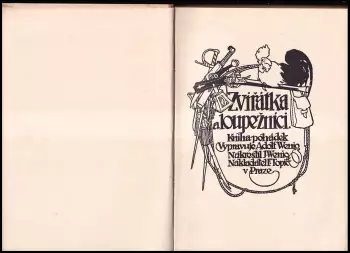 Zvířátka
a loupežníci.
Kniha pohádek
Vypravuje Adolf Wenig
Nakreslil J. Wenig
Nakladatel F. Topič
v Praze